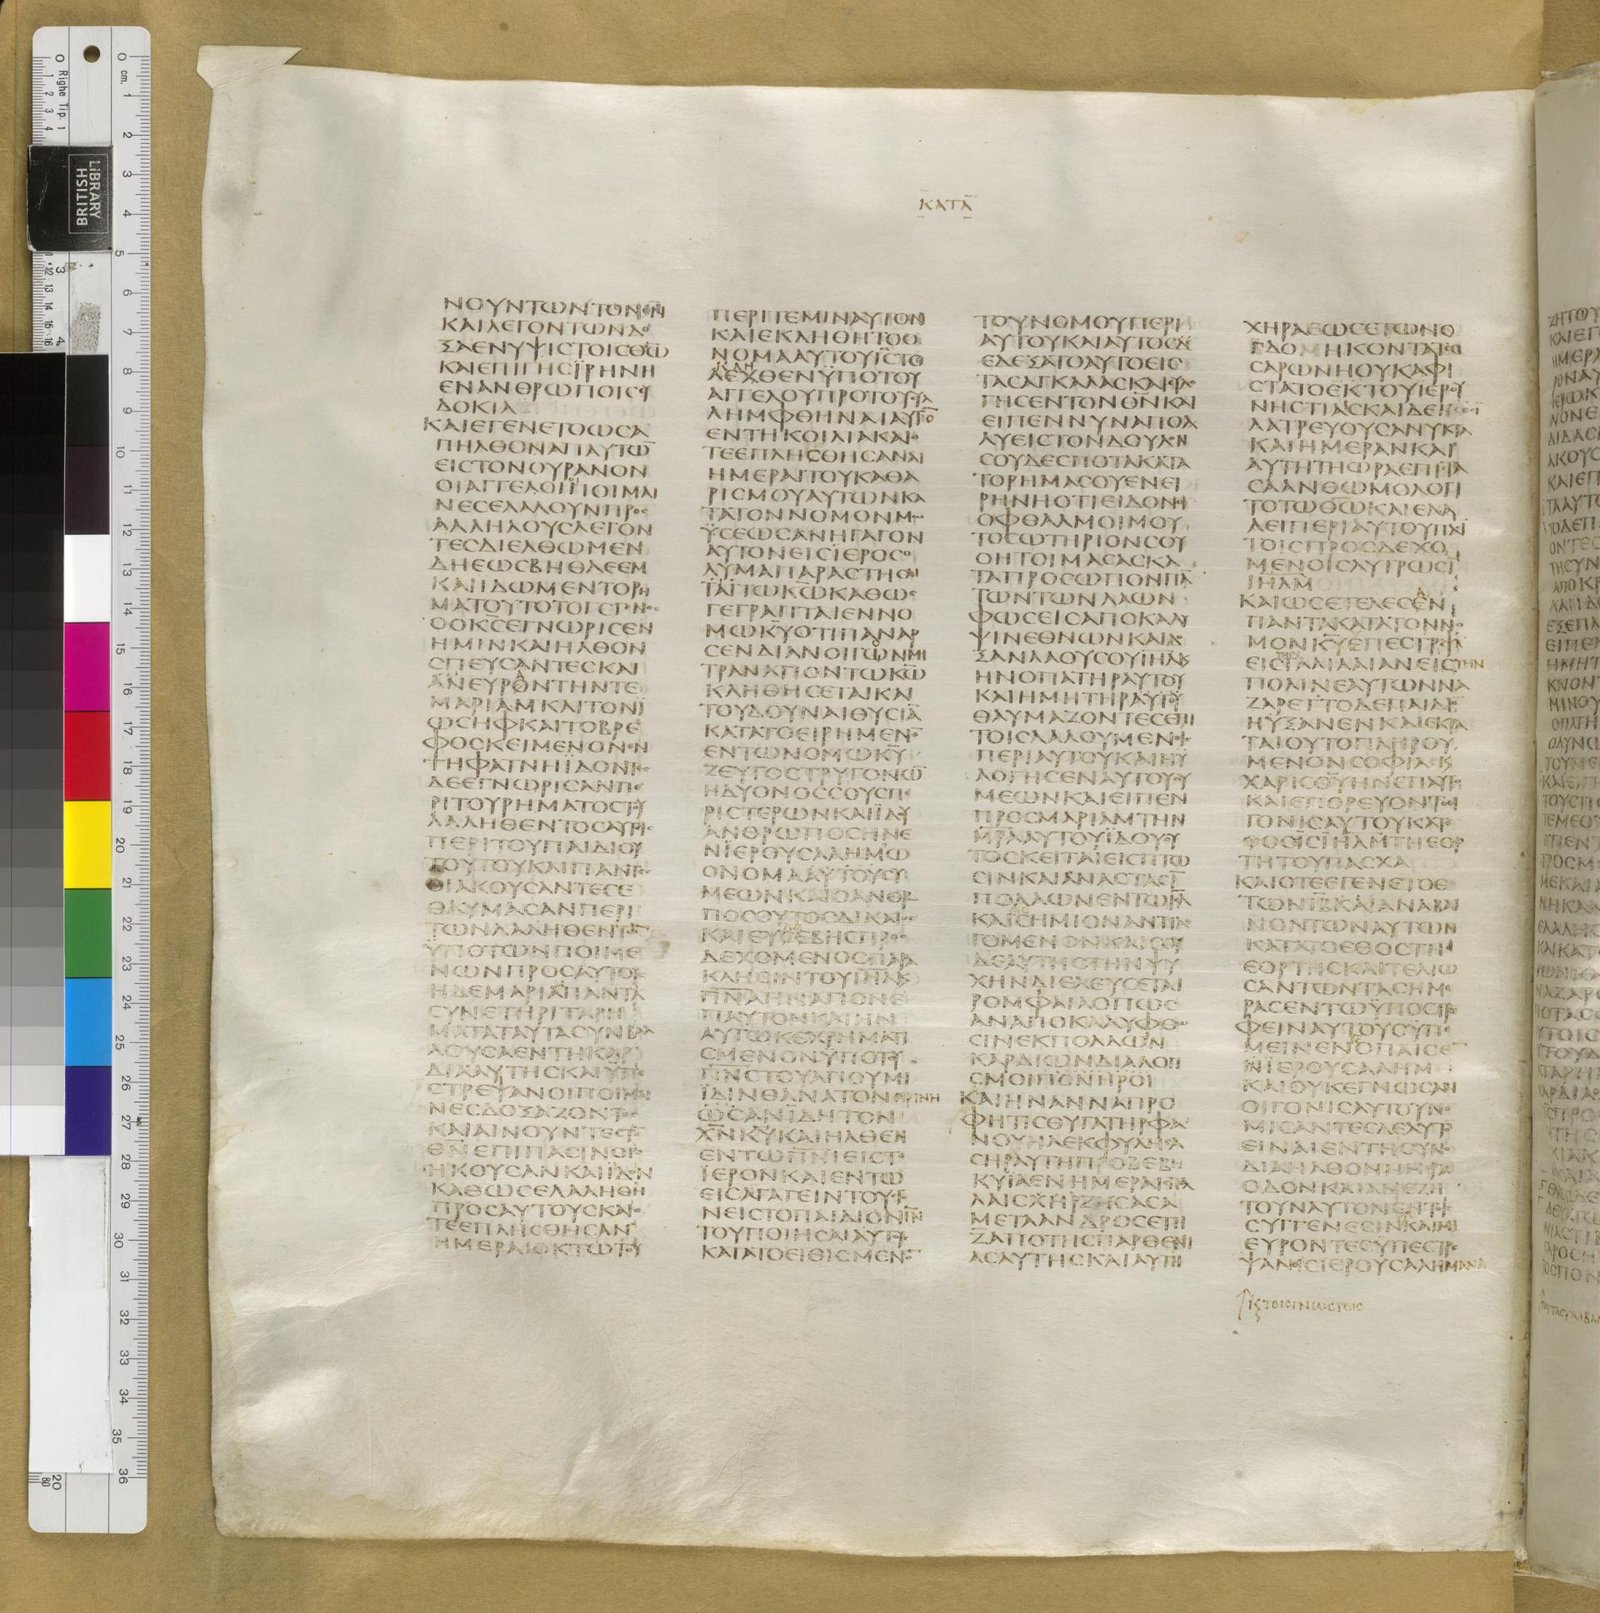 ΚΑΤΑ
ΝΟΥΝΤΩΝΤΟΝΘΝ
ΚΑΙΛΕΓΟΝΤΩΝΔΟ
ΞΑΕΝΥΨΙϹΤΟΙϹΘΩ
ΚΑΙΕΠΙΓΗϹΪΡΗΝΗ
ΕΝΑΝΘΡΩΠΟΙϹΕΥ
ΔΟΚΙΑϹ
ΚΑΙΕΓΕΝΕΤΟΩϹΑ
ΠΗΛΘΟΝΑΠΑΥΤΩ
ΕΙϹΤΟΝΟΥΡΑΝΟΝ
ΟΙΑΓΓΕΛΟΙΟΙΠΟΙΜΑΙ
ΝΕϹΕΛΑΛΟΥΝΠΡΟϹ
ΑΛΛΗΛΟΥϹΛΕΓΟΝ
ΤΕϹΔΙΕΛΘΩΜΕΝ
ΔΗΕΩϹΒΗΘΛΕΕΜ
ΚΑΙΙΔΩΜΕΝΤΟΡΗ
ΜΑΤΟΥΤΟΤΟΓΕΓΟΝΟϹ
ΟΟΚϹΕΓΝΩΡΙϹΕΝ
ΗΜΙΝΚΑΙΗΛΘΟΝ
ϹΠΕΥϹΑΝΤΕϹΚΑΙ
ΑΝΕΥΡΟΝΤΗΝΤΕ
ΜΑΡΙΑΜΚΑΙΤΟΝΙ
ΩϹΗΦΚΑΙΤΟΒΡΕ
ΦΟϹΚΕΙΜΕΝΟΝΕΝ
ΤΗΦΑΤΝΗΪΔΟΝΤΕϹ
ΔΕΕΓΝΩΡΙϹΑΝΠΕ
ΡΙΤΟΥΡΗΜΑΤΟϹΤΟΥ
ΛΑΛΗΘΕΝΤΟϹΑΥΤΟΙϹ
ΠΕΡΙΤΟΥΠΑΙΔΙΟΥ
ΤΟΥΤΟΥΚΑΙΠΑΝΤΕϹ
ΟΙΑΚΟΥϹΑΝΤΕϹΕ
ΘΑΥΜΑϹΑΝΠΕΡΙ
ΤΩΝΛΑΛΗΘΕΝΤΩΝ
ΫΠΟΤΩΝΠΟΙΜΕ
ΝΩΝΠΡΟϹΑΥΤΟΥϹ
ΗΔΕΜΑΡΙΑΠΑΝΤΑ
ϹΥΝΕΤΗΡΙΤΑΡΗ
ΜΑΤΑΤΑΥΤΑϹΥΝΒΑΛ
ΛΟΥϹΑΕΝΤΗΚΑΡ
ΔΙΑΑΥΤΗϹΚΑΙΥΠΕ
ϹΤΡΕΨΑΝΟΙΠΟΙΜΕ
ΝΕϹΔΟΞΑΖΟΝΤΕϹ
ΚΑΙΑΙΝΟΥΝΤΕϹΤΟΝ
ΘΝΕΠΙΠΑϹΙΝΟΙϹ
ΗΚΟΥϹΑΝΚΑΙΪΔΟΝ
ΚΑΘΩϹΕΛΑΛΗΘΗ
ΠΡΟϹΑΥΤΟΥϹΚΑΙΟ
ΤΕΕΠΛΗϹΘΗϹΑΝ
ΗΜΕΡΑΙΟΚΤΩΤΟΥ
ΠΕΡΙΤΕΜΙΝΑΥΤΟΝ
ΚΑΙΕΚΛΗΘΗΤΟΟ
ΝΟΜΑΑΥΤΟΥΙϹΤΟ
ΛΕΧΘΕΝΫΠΟΤΟΥ
ΑΓΓΕΛΟΥΠΡΟΤΟΥϹΥΛ
ΛΗΜΦΘΗΝΑΙΑΥΤΟ
ΕΝΤΗΚΟΙΛΙΑΚΑΙΟ
ΤΕΕΠΛΗϹΘΗϹΑΝΑΙ
ΗΜΕΡΑΙΤΟΥΚΑΘΑ
ΡΙϹΜΟΥΑΥΤΩΝΚΑ
ΤΑΤΟΝΝΟΜΟΝΜΩ
ΫϹΕΩϹΑΝΗΓΑΓΟΝ
ΑΥΤΟΝΕΙϹΪΕΡΟϹΟ
ΛΥΜΑΠΑΡΑϹΤΗϹΑΙ
ΤΩΚΩΚΑΘΩϹ
ΓΕΓΡΑΠΤΑΙΕΝΝΟ
ΜΩΚΥΟΤΙΠΑΝΑΡ
ϹΕΝΔΙΑΝΟΙΓΩΝΜΗ
ΤΡΑΝΑΓΙΟΝΤΩΚΩ
ΚΛΗΘΗϹΕΤΑΙΚΑΙ
ΤΟΥΔΟΥΝΑΙΘΥϹΙΑ
ΚΑΤΑΤΟΕΙΡΗΜΕΝΟΝ
ΕΝΤΩΝΟΜΩΚΥ
ΖΕΥΓΟϹΤΡΥΓΟΝΩ
ΗΔΥΟΝΟϹϹΟΥϹΠΕ
ΡΙϹΤΕΡΩΝΚΑΙΪΔΟΥ
ΑΝΘΡΩΠΟϹΗΝΕ
ΝΪΕΡΟΥϹΑΛΗΜΩ
ΟΝΟΜΑΑΥΤΟΥϹΥ
ΜΕΩΝΚΑΙΟΑΝΘΡΩ
ΠΟϹΟΥΤΟϹΔΙΚΑΙΟϹ
ΚΑΙΕΥϹΕΒΗϹΠΡΟϹ
ΔΕΧΟΜΕΝΟϹΠΑΡΑ
ΚΛΗϹΙΝΤΟΥΙΗΛΚΑΙ
ΠΝΑΗΝΑΓΙΟΝΕ
ΠΑΥΤΟΝΚΑΙΗΝ
ΑΥΤΩΚΕΧΡΗΜΑΤΙ
ϹΜΕΝΟΝΥΠΟΤΟΥ
ΠΝϹΤΟΥΑΓΙΟΥΜΗ
ΪΔΙΝΘΑΝΑΤΟΝΠΡΙΝΗ
ΩϹΑΝΪΔΗΤΟΝ
ΧΝΚΥΚΑΙΗΛΘΕΝ
ΕΝΤΩΠΝΙΕΙϹΤΟ
ΪΕΡΟΝΚΑΙΕΝΤΩ
ΕΙϹΑΓΑΓΕΙΝΤΟΥϹΓΟ
ΝΕΙϹΤΟΠΑΙΔΙΟΝΙΝ
ΤΟΥΠΟΙΗϹΑΙΑΥΤΟΥϹ
ΚΑΤΑΤΟΕΙΘΙϹΜΕΝΟΝ
ΤΟΥΝΟΜΟΥΠΕΡΙ
ΑΥΤΟΥΚΑΙΑΥΤΟϹΑΙ
ΕΔΕΞΑΤΟΑΥΤΟΕΙϹ
ΤΑϹΑΓΚΑΛΑϹΚΑΙΕΥΛΟ
ΓΗϹΕΝΤΟΝΘΝΚΑΙ
ΕΙΠΕΝΝΥΝΑΠΟΛ
ΛΥΕΙϹΤΟΝΔΟΥΛΟΝ
ϹΟΥΔΕϹΠΟΤΑΚΑΤΑ
ΤΟΡΗΜΑϹΟΥΕΝΕΙ
ΡΗΝΗΟΤΙΕΙΔΟΝΟΙ
ΟΦΘΑΛΜΟΙΜΟΥ
ΤΟϹΩΤΗΡΙΟΝϹΟΥ
ΟΗΤΟΙΜΑϹΑϹΚΑ
ΤΑΠΡΟϹΩΠΟΝΠΑ
ΤΩΝΤΩΝΛΑΩΝ
ΦΩϹΕΙϹΑΠΟΚΑΛΥ
ΨΙΝΕΘΝΩΝΚΑΙΔΟ
ΞΑΝΛΑΟΥϹΟΥΪΗΛΚΑΙ
ΗΝΟΠΑΤΗΡΑΥΤΟΥ
ΚΑΙΗΜΗΤΗΡΑΥΤΟΥ
ΘΑΥΜΑΖΟΝΤΕϹΕΠΙ
ΤΟΙϹΛΑΛΟΥΜΕΝΟΙϹ
ΠΕΡΙΑΥΤΟΥΚΑΙΗΥ
ΛΟΓΗϹΕΝΑΥΤΟΥϹϹΥ
ΜΕΩΝΚΑΙΕΙΠΕΝ
ΠΡΟϹΜΑΡΙΑΜΤΗΝ
ΜΡΑΑΥΤΟΥΪΔΟΥΟΥ
ΤΟϹΚΕΙΤΑΙΕΙϹΠΤΩ
ϹΙΝΚΑΙΑΝΑϹΤΑϹΙ
ΠΟΛΛΩΝΕΝΤΩΙΗΛ
ΚΑΙϹΗΜΙΟΝΑΝΤΙΛΕ
ΓΟΜΕΝΟΝΚΑΙϹΟΥ
ΔΕΑΥΤΗϹΤΗΝΨΥ
ΧΗΝΔΙΕΛΕΥϹΕΤΑΙ
ΡΟΜΦΑΙΑΟΠΩϹ
ΑΝΑΠΟΚΑΛΥΦΘΩ
ϹΙΝΕΚΠΟΛΛΩΝ
ΚΑΡΔΙΩΝΔΙΑΛΟΓΙ
ϹΜΟΙΠΟΝΗΡΟΙ
ΚΑΙΗΝΑΝΝΑΠΡΟ
ΦΗΤΙϹΘΥΓΑΤΗΡΦΑ
ΝΟΥΗΛΕΚΦΥΛΗϹΑ
ϹΗΡΑΥΤΗΠΡΟΒΕΒΗ
ΚΥΪΑΕΝΗΜΕΡΑΙϹΠΟΛ
ΛΑΙϹΧΗΡΖΗϹΑϹΑ
ΜΕΤΑΑΝΔΡΟϹΕΤΗ
ΖΑΠΟΤΗϹΠΑΡΘΕΝΙ
ΑϹΑΥΤΗϹΚΑΙΑΥΤΗ
ΧΗΡΑΕΩϹΕΤΩΝΟ
ΓΔΟΜΗΚΟΝΤΑΤΕϹϹΑ
ϹΑΡΩΝΗΟΥΚΑΦΙ
ϹΤΑΤΟΕΚΤΟΥΙΕΡΟΥ
ΝΗϹΤΙΑΙϹΚΑΙΔΕΗϹΕϹΙ
ΛΑΤΡΕΥΟΥϹΑΝΥΚΤΑ
ΚΑΙΗΜΕΡΑΝΚΑΙ
ΑΥΤΗΤΗΩΡΑΕΠΙϹΤΑ
ϹΑΑΝΘΩΜΟΛΟΓΙ
ΤΟΤΩΘΩΚΑΙΕΛΑ
ΛΕΙΠΕΡΙΑΥΤΟΥΠΑϹΙ
ΤΟΙϹΠΡΟϹΔΕΧΟ
ΜΕΝΟΙϹΛΥΤΡΩϹΙ
ΙΗΛΜ
ΚΑΙΩϹΕΤΕΛΕϹΕΝ
ΠΑΝΤΑΚΑΤΑΤΟΝΝΟ
ΜΟΝΚΥΕΠΕϹΤΡΕΨΑ
ΕΙϹΓΑΛΙΛΑΙΑΝΕΙϹΤΗΝ
ΠΟΛΙΝΕΑΥΤΩΝΝΑ
ΖΑΡΕΤΤΟΔΕΠΑΙΔΙΟΝ
ΗΥΞΑΝΕΝΚΑΙΕΚΡΑ
ΤΑΙΟΥΤΟΠΛΗΡΟΥ
ΜΕΝΟΝϹΟΦΙΑϹΚΑΙ
ΧΑΡΙϹΘΥΗΝΕΠΑΥΤΟ
ΚΑΙΕΠΟΡΕΥΟΝΤΟΟΙ
ΓΟΝΙϹΑΥΤΟΥΚΑΤΕ
ΤΟϹΕΙϹΙΗΛΜΤΗΕΟΡ
ΤΗΤΟΥΠΑϹΧΑ
ΚΑΙΟΤΕΕΓΕΝΕΤΟΕ
ΤΩΝΙΒΚΑΙΑΝΑΒΑΙ
ΝΟΝΤΩΝΑΥΤΩΝ
ΚΑΤΑΤΟΕΘΟϹΤΗϹ
ΕΟΡΤΗϹΚΑΙΤΕΛΙΩ
ϹΑΝΤΩΝΤΑϹΗΜΕ
ΡΑϹΕΝΤΩΫΠΟϹΤΡΕ
ΦΕΙΝΑΥΤΟΥϹΥΠΕ
ΜΕΙΝΕΝΟΠΑΙϹΕ
ΝΙΕΡΟΥϹΑΛΗΜ
ΚΑΙΟΥΚΕΓΝΩϹΑΝ
ΟΙΓΟΝΙϹΑΥΤΟΥΝΟ
ΜΙϹΑΝΤΕϹΔΕΑΥΤΟ
ΕΙΝΑΙΕΝΤΗϹΥΝΟ
ΔΙΑΗΛΘΟΝΗΜΕΡΑϹ
ΟΔΟΝΚΑΙΑΝΕΖΗ
ΤΟΥΝΑΥΤΟΝΕΝΤΟΙϹ
ϹΥΓΓΕΝΕϹΙΝΚΑΙΜΗ
ΕΥΡΟΝΤΕϹΥΠΕϹΤΡΕ
ΨΑΝΕΙϹΙΕΡΟΥϹΑΛΗΜΑΝΑ
ΚΑΙΤΟΙϹΓΝΩϹΤΟΙϹ